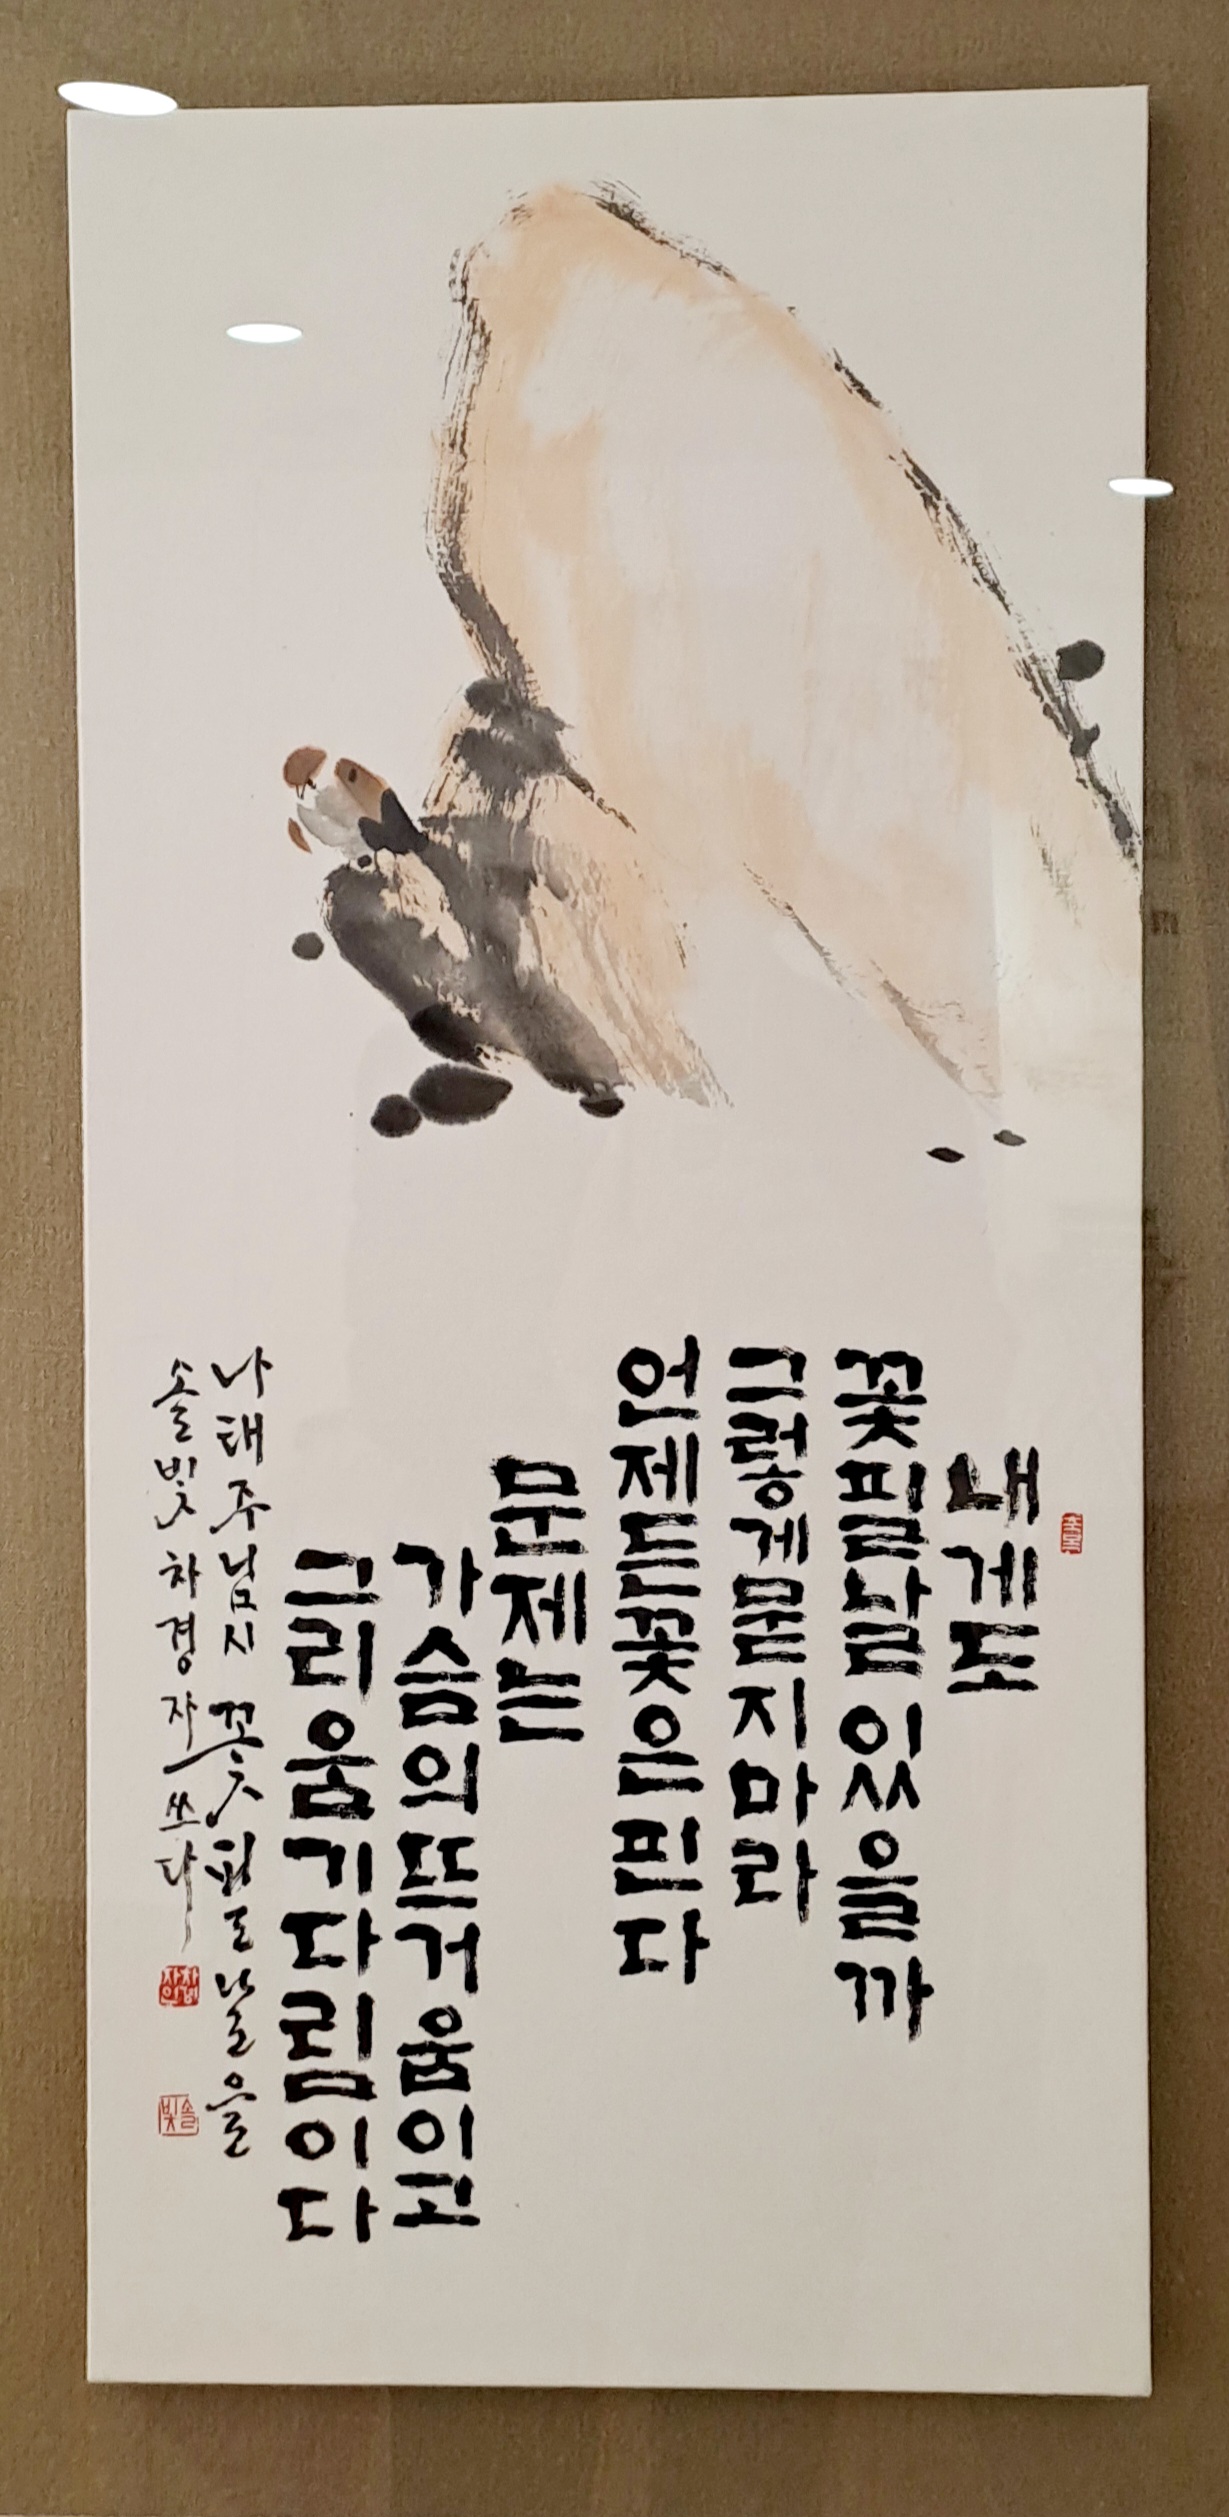 내게도
꽃필날 있을까
그렇게 묻지 마라
언제든 꽃은 핀다
문제는
가슴의 뜨거움이고
그리움 기다림이다
나태주님시 꽃피는 날을
솔빛 차경자 쓰다
솔빛